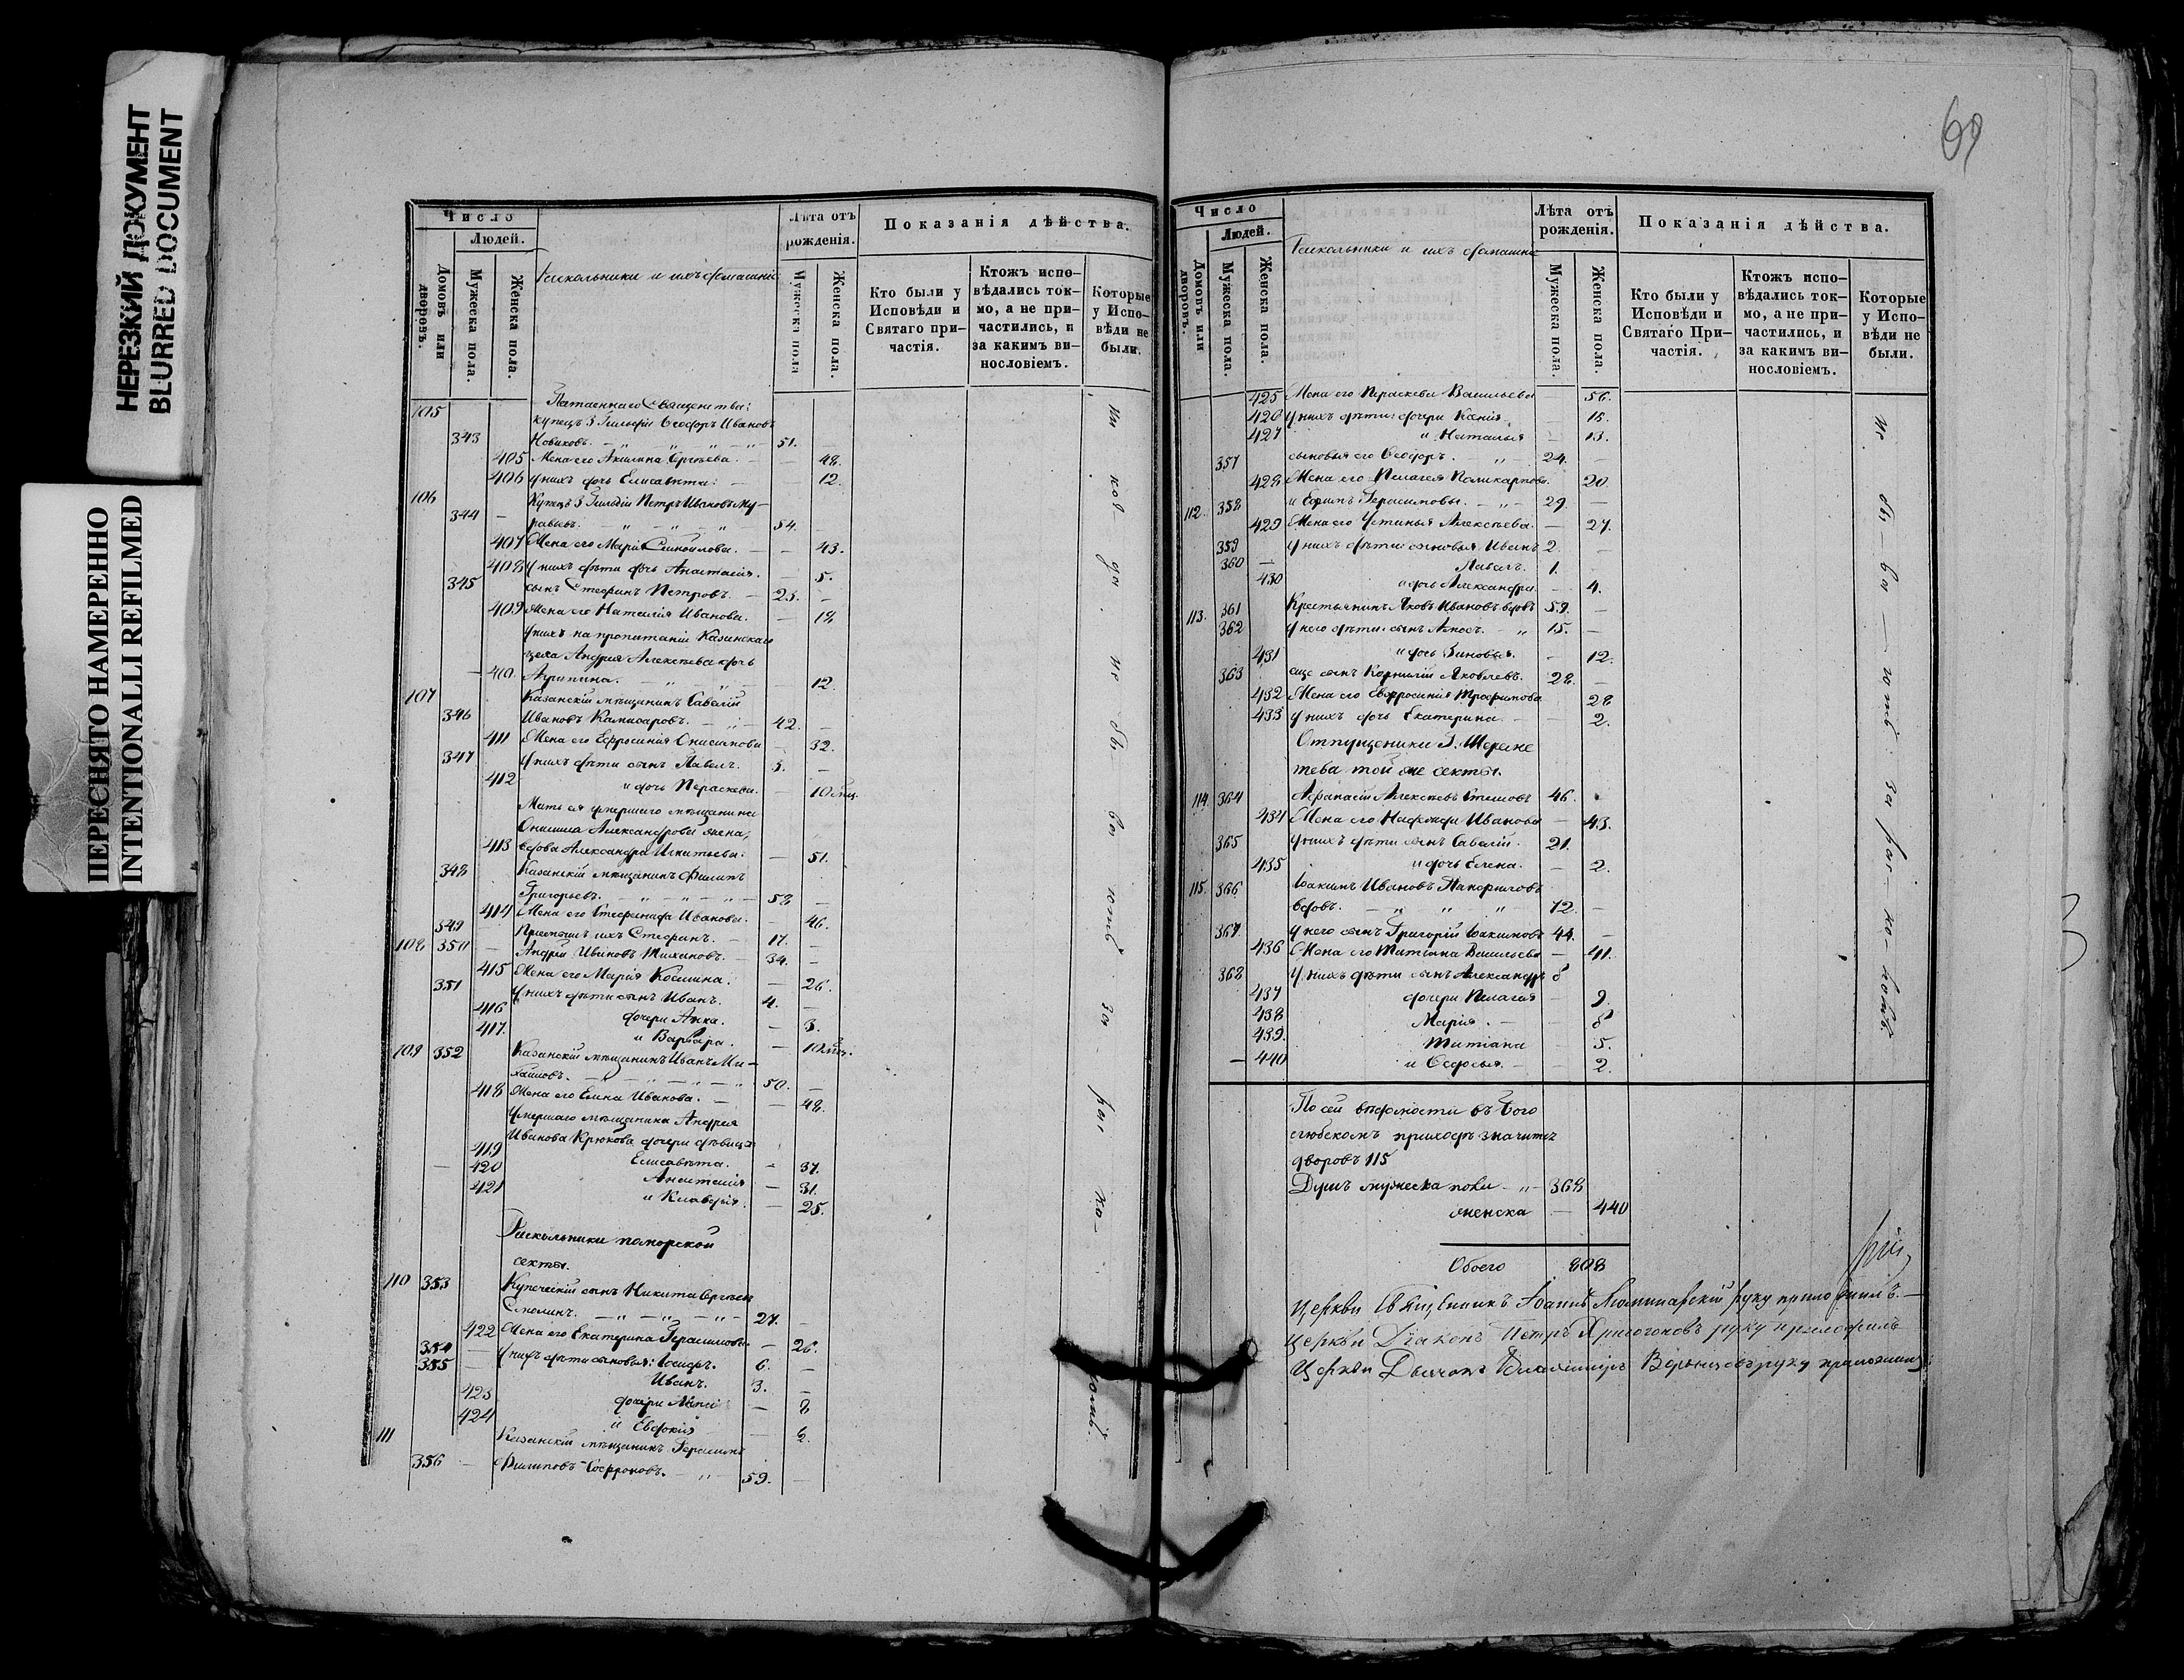 НЕРЕЗКИЙ ДОКУМЕНТ
BLURRED DOCUMENT
ПЕРЕСНЯТО НАМЕРЕННО
INTENTIONALLI REFILMED
Число
Людей.
Домовъ или дворовъ.
Мужеска пола.
Женска пола.
Раскольники и ихъ домашніе
Лѣта отъ рожденія.
Мужеска пола
Женска пола.
Показанія дѣйства.
Кто были у Исповѣди и Святаго причастія.
Ктожъ исповѣдались токмо, а не причастились, и за какимъ винословіемъ.
Которые у Исповѣди не были.
105
купецъ 3 Гильдіи Ѳеодоръ Ивановъ
343 Новиковъ. 51.
405 Жена его Акилина Сергѣева. 48.
406 у нихъ дочь Елисавета. 12.
106 Купецъ 3 Гильдіи Петръ Ивановъ Му-
344 равьевъ. 54.
407 Жена его Марія Самоилова. 43.
408 у нихъ дѣти дочь Анастасія. 5.
345 сынъ Стефанъ Петровъ. 23.
409 Жена его Наталія Иванова. 18
у нихъ на пропитаніи Казанскаго
цеха Андрея Алексѣева дочь
410 Агрипина. 12.
107 Казанскій мѣщанинъ Савелій
346 Ивановъ Комисаровъ. 42.
411 Жена его Ефросинія Онисимова 32.
347 у нихъ дѣти сынъ Павелъ. 3.
412 и дочь Параскева. 10 мц.
Мать ея умершаго мѣщанина
Онисима Александрова жена,
413 вдова Александра Игнатьева. 51.
348 Казанскій мѣщанинъ Филипъ
Григорьевъ. 58
414 Жена его Стефанида Иванова. 46.
349 Пріемышъ ихъ Стефанъ. 17.
108 350 Андрей Ивановъ Тихановъ. 34.
415 Жена его Марія Козмина. 26.
351 у нихъ дѣти сынъ Иванъ. 4.
416 дочери Анна. 3.
417. и Варвара. 10 мц.
109 352 Казанскій мѣщанинъ Иванъ Ми-
хаиловъ. 50.
418 Жена его Елена Иванова. 48.
Умершаго мѣщанина Андрея
Иванова Крюкова дочери дѣвицы
419 Елисавета. 37.
420 Анастасія 31.
421 и Клавдія. 25.
Раскольники поморской
секты.
110 353 Купеческій сынъ Никита Сергѣевъ
Смолинъ. 27.
422 Жена его Екатерина Герасимова. 26.
354 у нихъ дѣти сыновья: Іосифъ. 6.
355 Иванъ. 3.
423 дочери 8
424 и Евдокія 6.
111 Казанскій мѣщанинъ Герасимъ
356 Филиповъ Софроновъ. 59.
69
Число
Людей.
Домовъ или дворовъ.
Мужеска пола.
Женска пола.
Раскольники и ихъ домашніе
Лѣта отъ рожденія.
Мужеска пола.
Женска пола.
Показанія дѣйства.
Кто были у Исповѣди и Святаго Причастія.
Ктожъ исповѣдались токмо, а не причастились, и за какимъ винословіемъ.
Которые у Исповѣди не были.
425 Жена его Параскева Васильева 56.
426 у нихъ дѣти: дочери Ксенія 15.
427 и Наталья 13.
357 сыновья его Ѳеодоръ. 24.
428 Жена его Пелагея Поликарпова. 20.
112. 358 и Ефимъ Герасимовы. 29.
429 Жена его Устинья Алексѣева. 27.
359 у нихъ дѣти: сыновья Иванъ 2.
360 Павелъ. 1.
430 и дочь Александра 4.
113. 361 Крестьянинъ Яковъ Ивановъ вдовъ 59.
362 у него дѣти: сынъ Амосъ. 15.
431 и дочь Зиновья. 12.
363 еще сынъ Корнилій Яковлевъ. 28.
432 Жена его Евфросинія Трофимова 28
433 у нихъ дочь Екатерина. 2.
Отпущеники Г. Шереме
тева той же секты.
114. 364 Афанасій Алексѣевъ 46.
434 Жена его Надежда Иванова 43.
365 у нихъ дѣти сынъ Савелій. 21.
435 и дочь Елена. 2.
115. 366 Іоакимъ Ивановъ
вдовъ. 72.
367. у него сынъ Григорій Іоакимовъ 44.
436 Жена его Татіана Васильева 41.
368 у нихъ дѣти сынъ Александръ 8
437 дочери Пелагея 9.
438 Марія. 8
439. Татіана 5.
440 и Ѳедосья. 2.
По сей вѣдомости въ Бого
словскомъ приходѣ значится
дворовъ 115
Душъ мужеска пола 368
женска 440
Обоего 808
Церкви Священникъ Іоаннъ руку приложилъ.
Церкви Діаконъ Петръ Хрисогоновъ руку приложилъ
Церкви Дьячокъ Владиміръ руку приложилъ